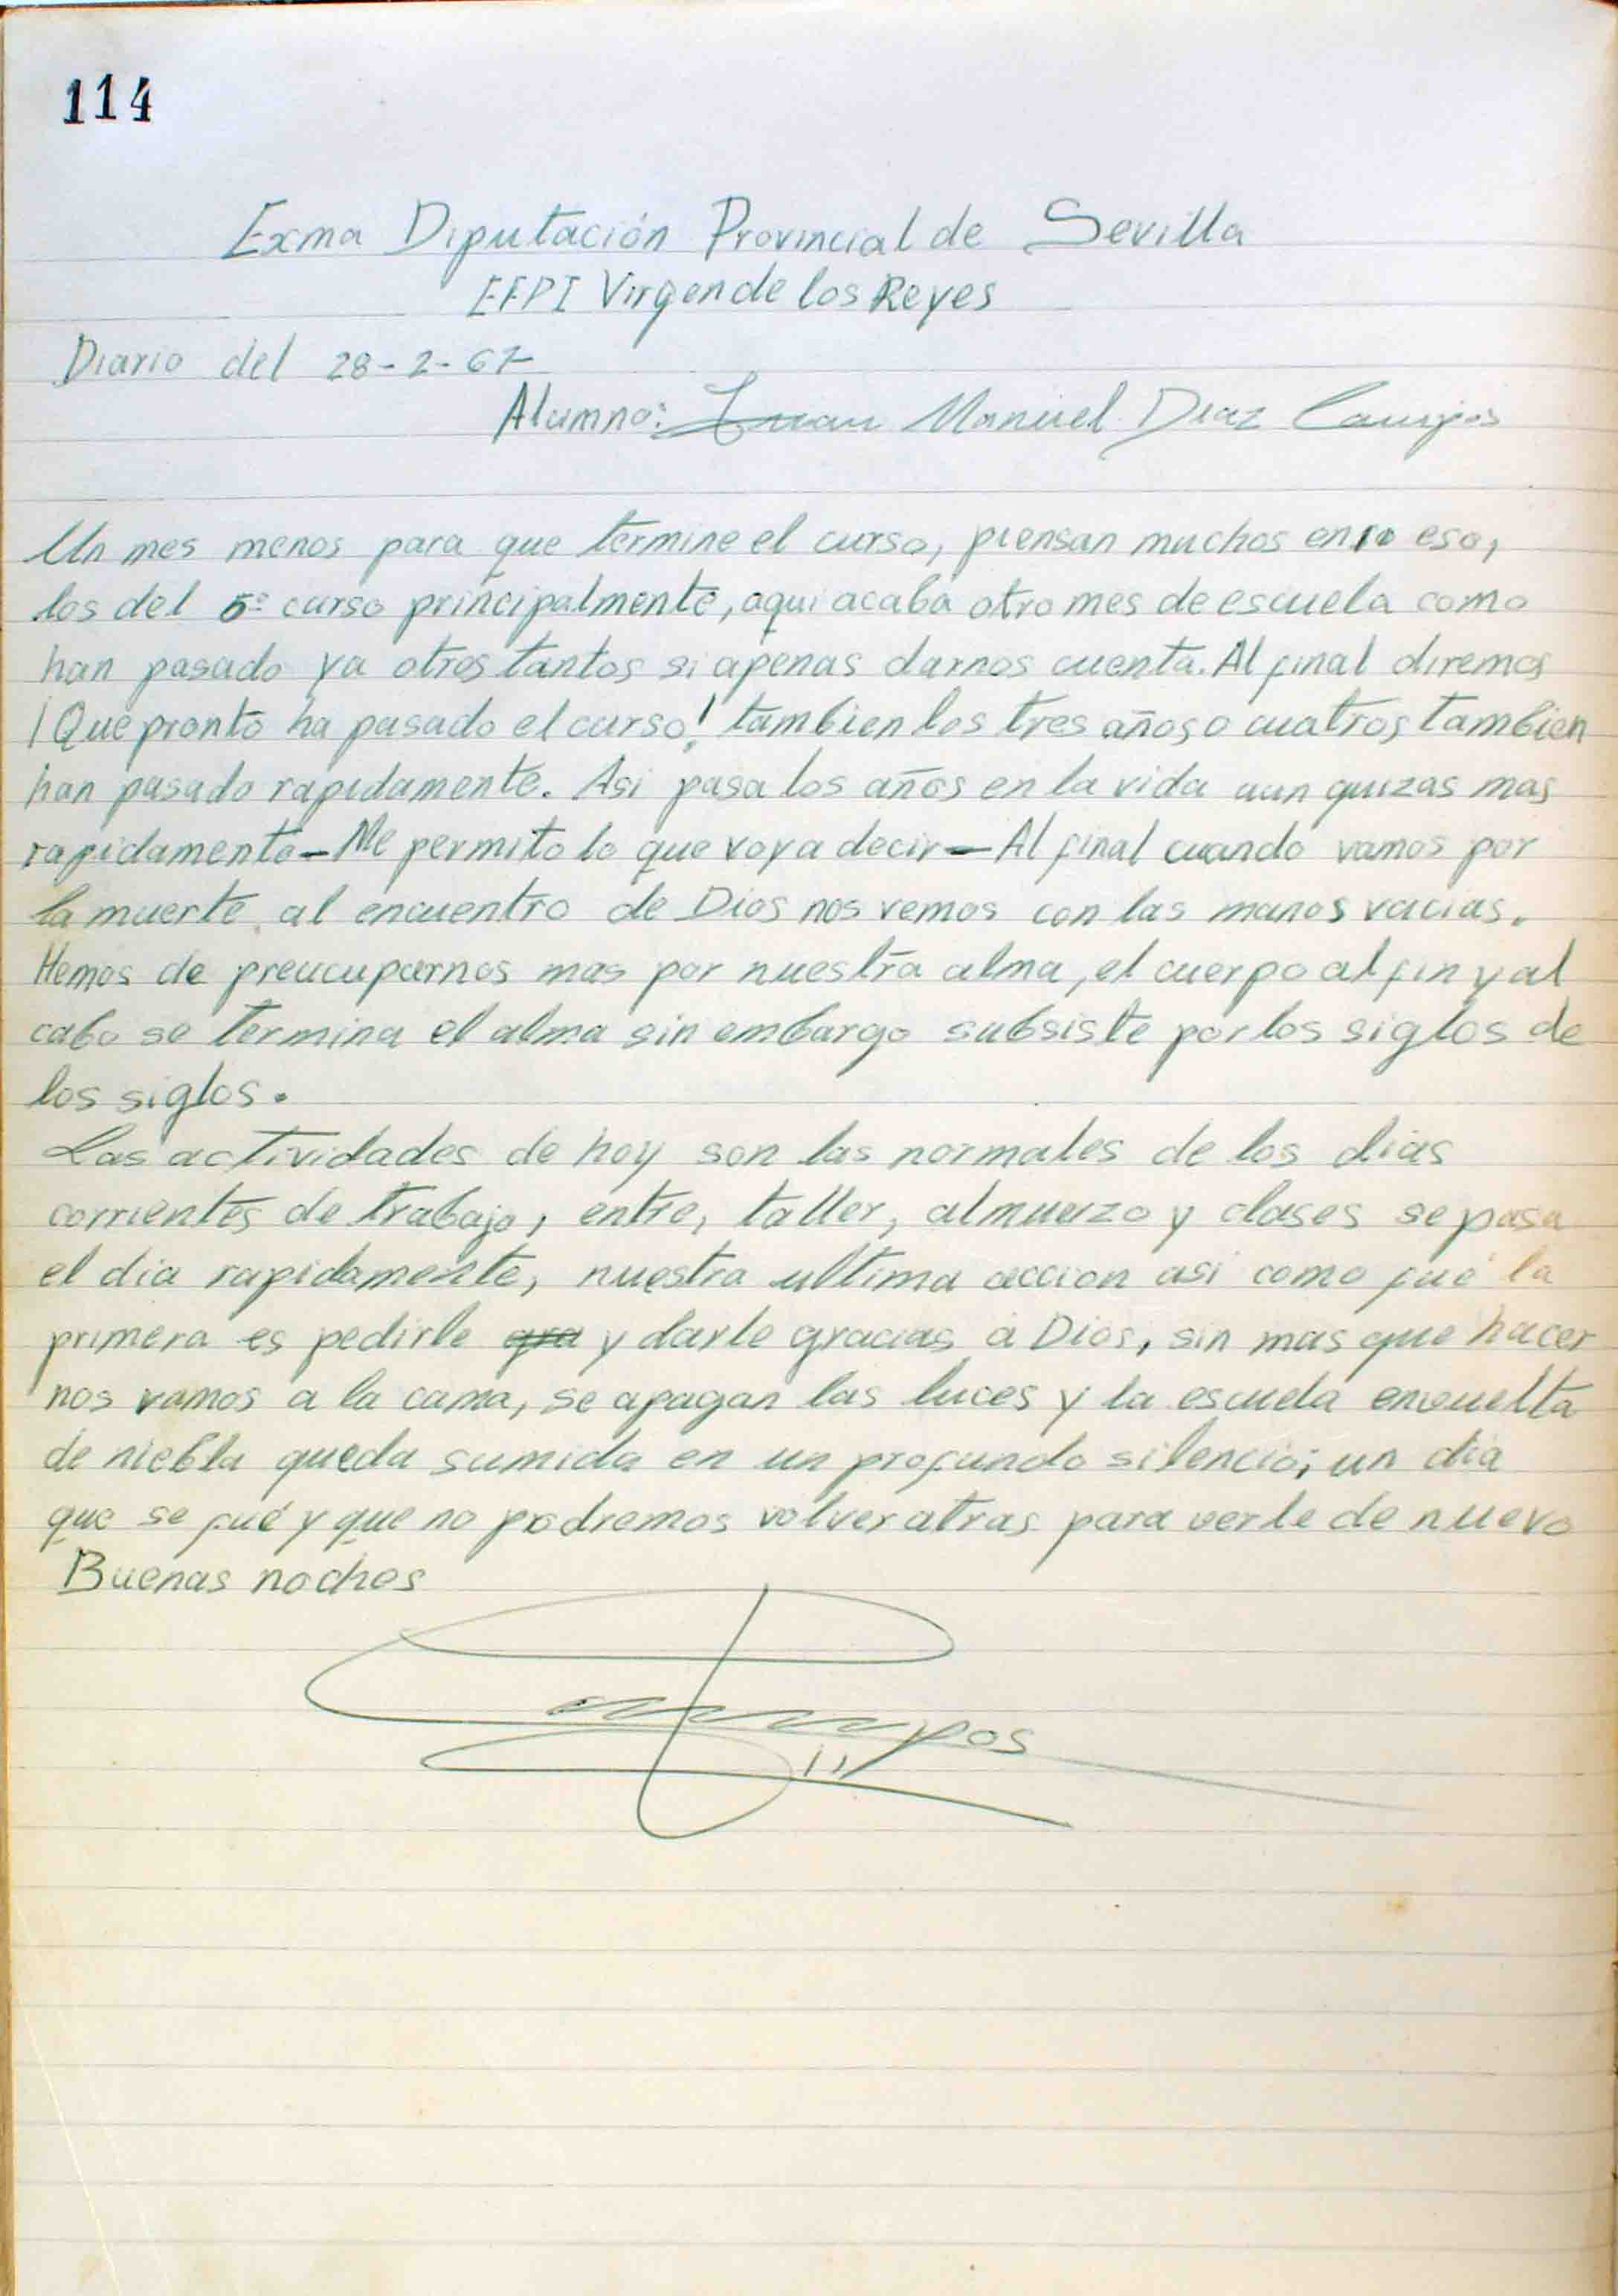 114
Exma Diputación Provincial de Sevilla
EFPI Virgen de los Reyes
Diario del 28-2-67
Alumno: Juan Manuel Diaz Campos
Un mes menos para que termine el curso, piensan muchos en eso,
los del 5º curso principalmente, aqui acaba otro mes de escuela como
han pasado ya otros tantos si apenas darnos cuenta. Al final diremos
¡Que pronto ha pasado el curso! tambien los tres años o cuatros tambien
han pasado rapidamente. Asi pasa los años en la vida aun quizas mas
rapidamente—Me permito lo que voy a decir—Al final cuando vamos por
la muerte al encuentro de Dios nos vemos con las manos vacias.
Hemos de preucuparnos mas por nuestra alma, el cuerpo al fin y al
cabo se termina el alma sin embargo subsiste por los siglos de
los siglos.
Las actividades de hoy son las normales de los dias
corrientes de trabajo, entre, taller, almuerzo y clases se pasa
el dia rapidamente, nuestra ultima accion asi como fué la
primera es pedirle gra y darle gracias a Dios, sin mas que hacer
nos vamos a la cama, se apagan las luces y la escuela envuelta
de niebla queda sumida en un profundo silencio; un dia
que se fué y que no podremos volver atras para verle de nuevo
Buenas noches
Campos